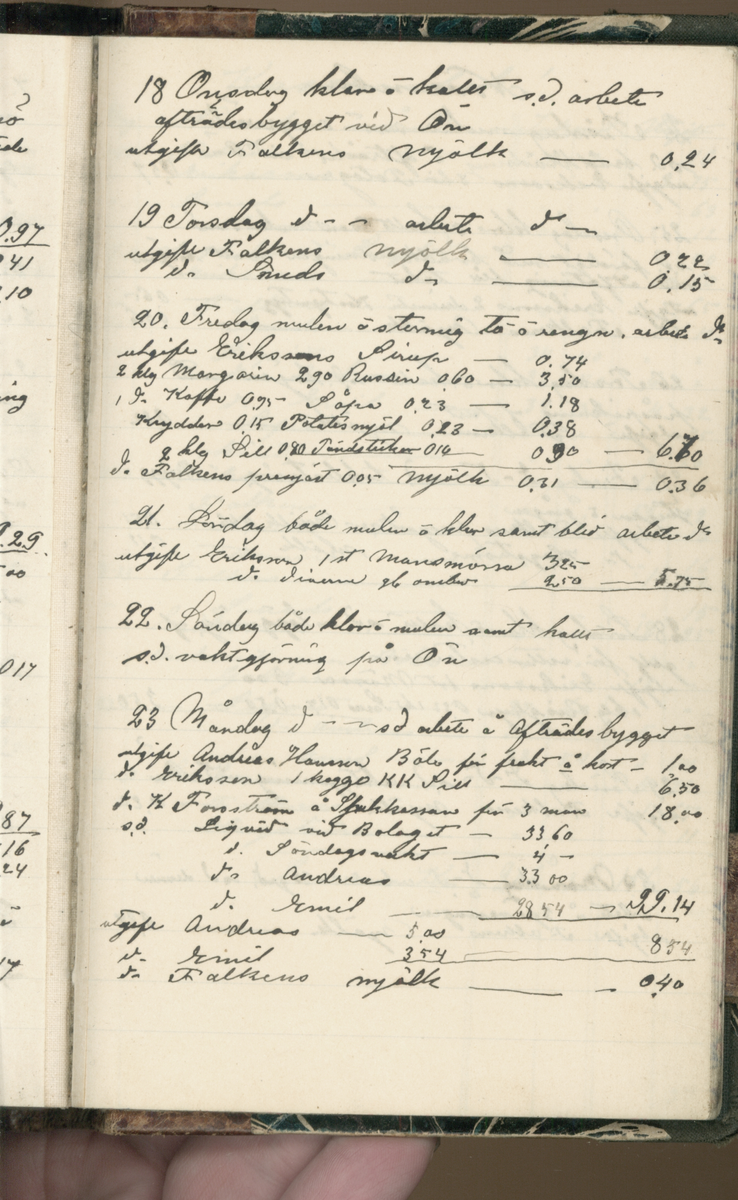 18 Onsdag klar o kallt s.d. arbete
afträdesbygget vid Ön
utgift Falkens mjölk — 0,24
19 Torsdag d - - arbete d -
utgift Falkens mjölk — 0.22
d. Smeds d. — 0.15
20. Fredag mulen ö stormig tö ö rengn. arbete d.
utgift Erikssons Sirup — 0.74
2 klg Margarin 290 Russin 0,60 — 3,50
1 d. Kaffe 0,95 Såpa 0,23 — 1.18
Kryddor 0,15 Potatismjöl 0,23 — 0,38
2 klg Sill 0,80 Tändstickor 0,10 — 0,90 — 6.70
d. Falkens 0,05 Mjölk 0,31 — 0.36
21. Lördag både mulen o klar samt blid arbete d.
utgift Eriksson 1 st Mansmössa 325
d. 250 — 5.75
22. Söndag både klar o mulen samt kallt
s.d. vaktgjörning på Ön
23 Måndag d - - s.d arbete å Afträdesbygget
utgift Andreas Hansson Böle för frakt å kost — 1,00
d. Eriksson 1 kagge KK Sill — 6.50
d. K Forsström å för 3 man 18,00
s.d. Liqvid vid Bolaget — 33 60
d. Söndagsvakt — 4 -
d. Andreas — 33 00
d. Emil — 28 54 — 99.14
utgift Andreas — 5,00
d. Emil 3 54 — 8 54
d. Falkens mjölk — 0,40